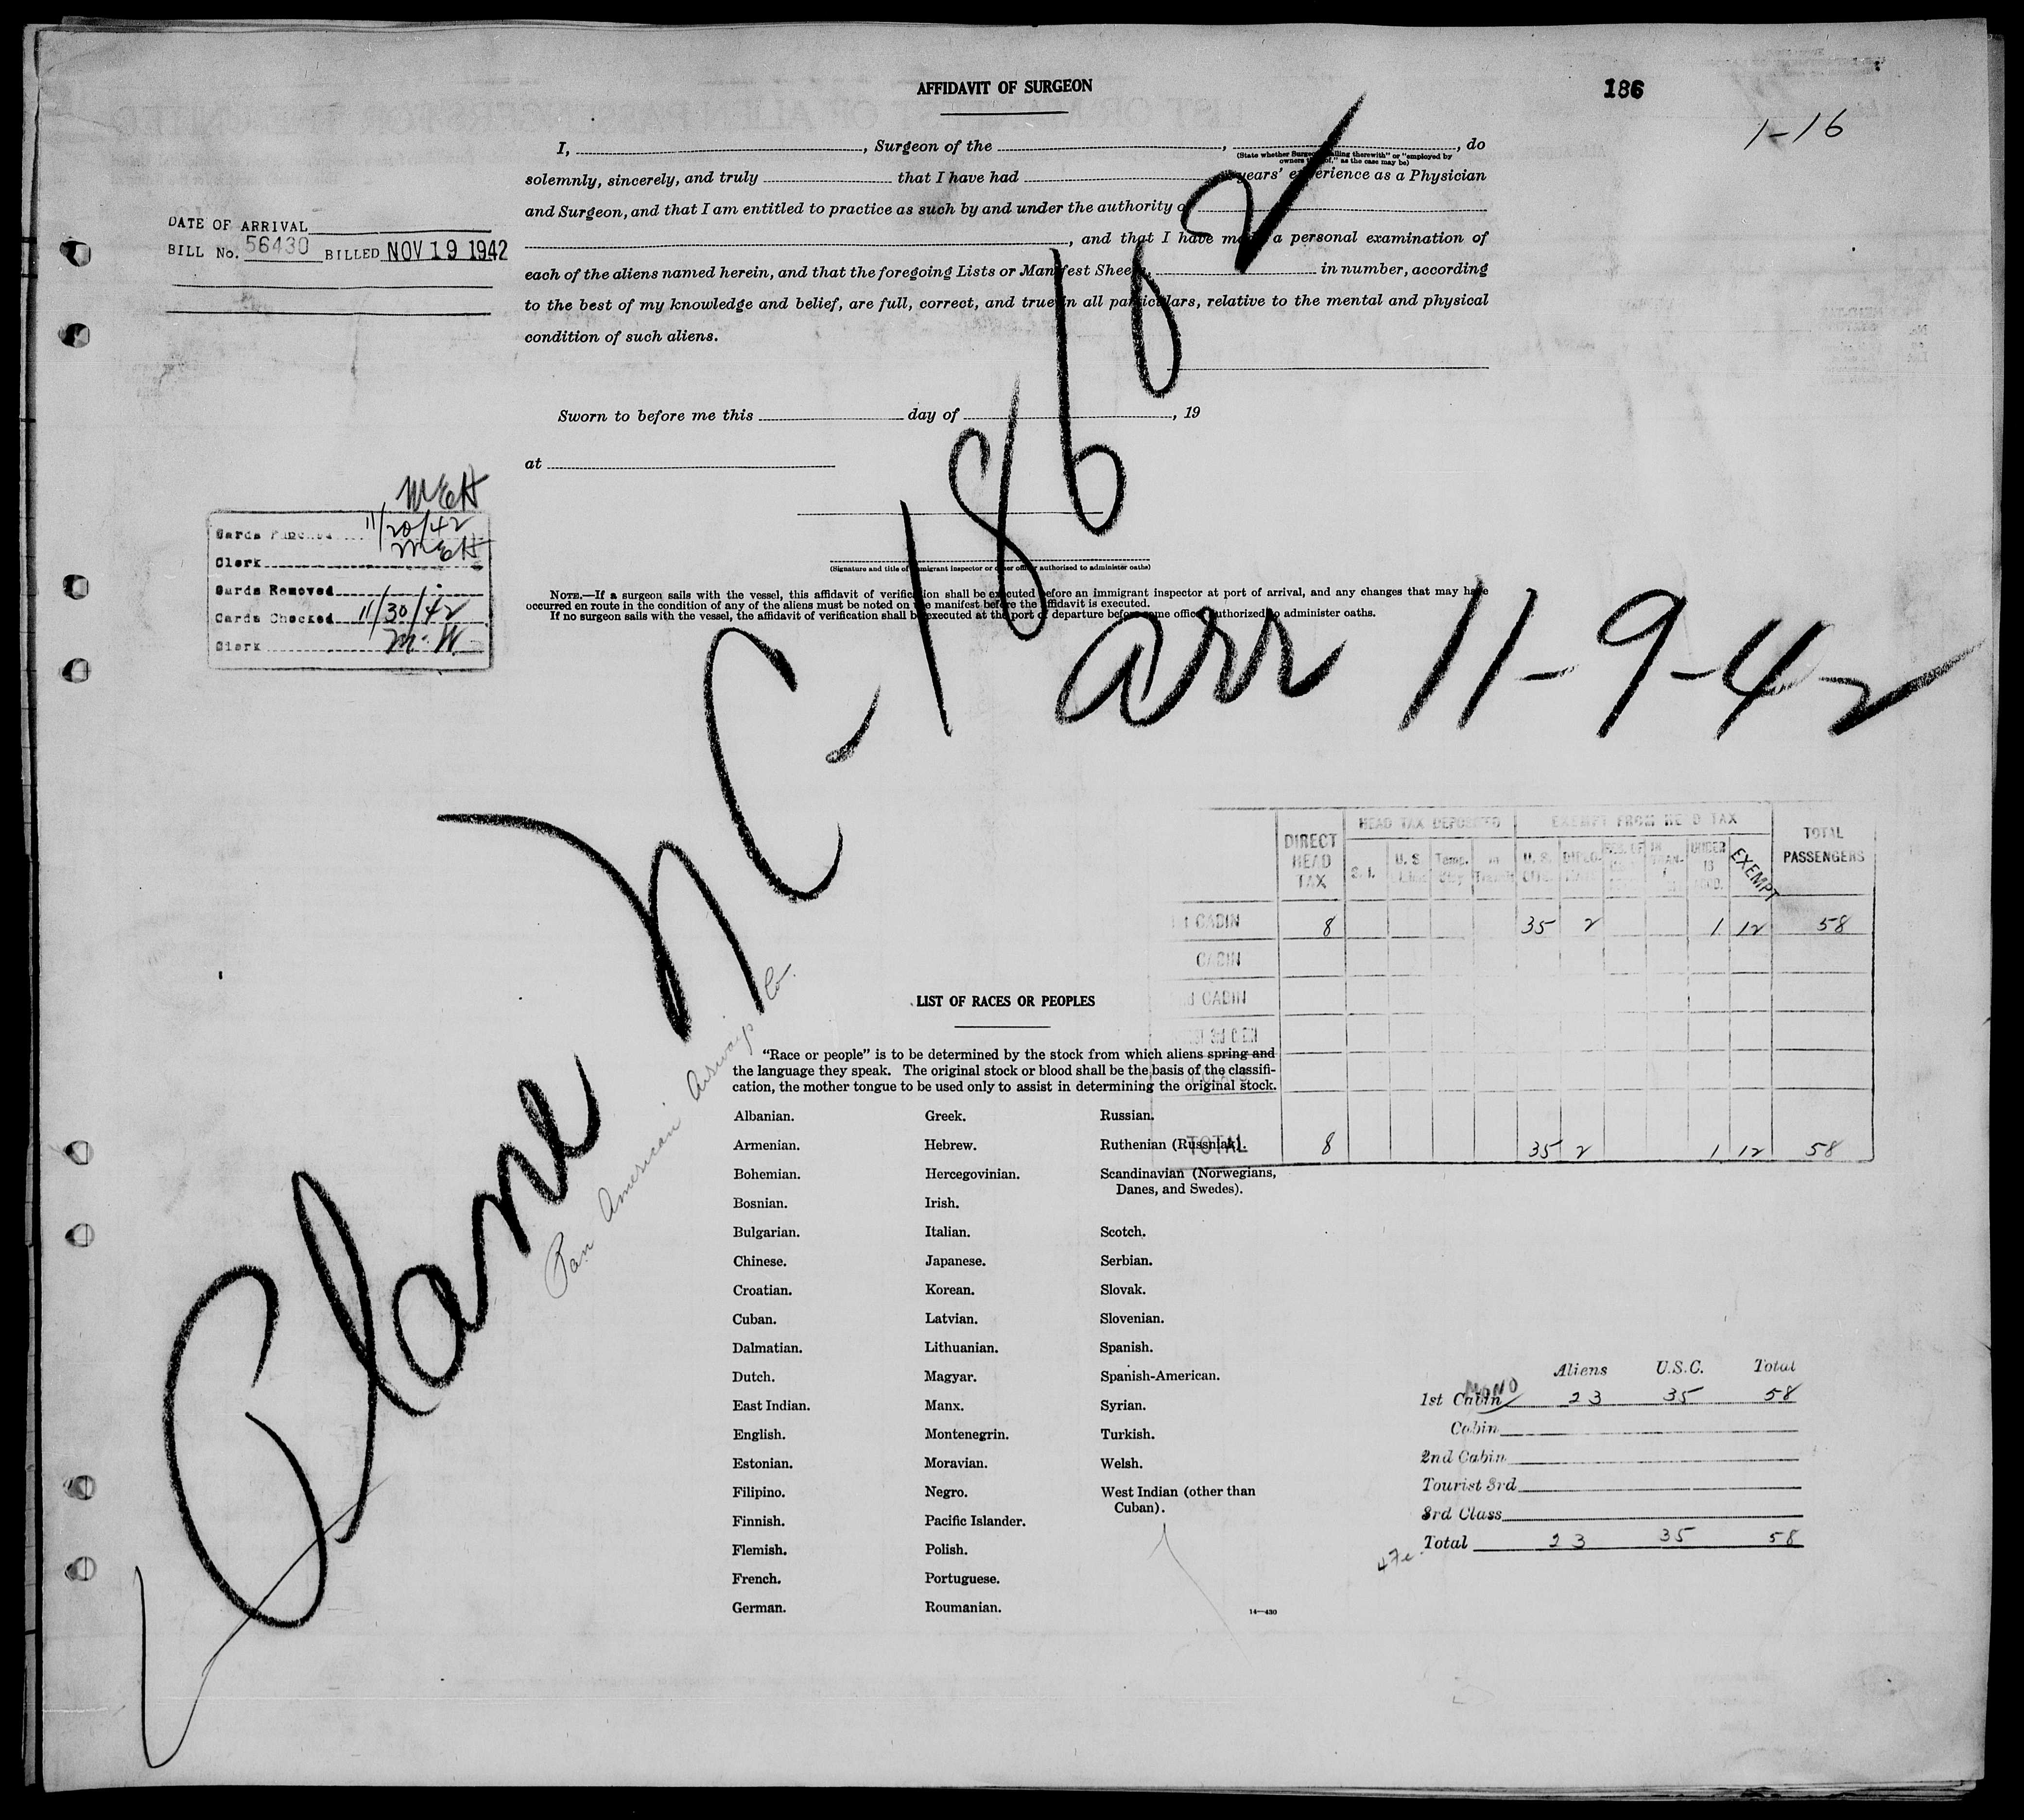 AFFIDAVIT OF SURGEON
186
1-16
I, , Surgeon of the , , do
(State whether Surgeon "sailing therewith" or "employed by
owners thereof," as the case may be)
solemnly, sincerely, and truly that I have had years' experience as a Physician
and Surgeon, and that I am entitled to practice as such by and under the authority of
, and that I have made a personal examination of
each of the aliens named herein, and that the foregoing Lists or Manifest Sheets, in number, according
to the best of my knowledge and belief, are full, correct, and true in all particulars, relative to the mental and physical
condition of such aliens.
DATE OF ARRIVAL
BILL No. 56430 BILLED NOV 19 1942
Sworn to before me this day of , 19
at
(Signature and title of immigrant inspector or other officer authorized to administer oaths)
NOTE.—If a surgeon sails with the vessel, this affidavit of verification shall be executed before an immigrant inspector at port of arrival, and any changes that may have
occurred en route in the condition of any of the aliens must be noted on the manifest before the affidavit is executed.
If no surgeon sails with the vessel, the affidavit of verification shall be executed at the port of departure before some officer authorized to administer oaths.
MEH
Cards Punched 11/20/42
Clerk MEH
Cards Removed
Cards Checked 11/30/42
Clerk M.W.
Plane NC-18612
arr 11-9-42
Pan American Airways Co.
DIRECT HEAD TAX HEAD TAX DEPOSITED EXEMPT FROM HEAD TAX TOTAL PASSENGERS
S.I. U.S. Temp. Stay In Transit U.S. UNDER 16 EXEMPT
CABIN 8 35 2 1 12 58
CABIN
CABIN
TOTAL 8 35 2 1 12 58
LIST OF RACES OR PEOPLES
"Race or people" is to be determined by the stock from which aliens spring and
the language they speak. The original stock or blood shall be the basis of the classifi-
cation, the mother tongue to be used only to assist in determining the original stock.
Albanian.
Armenian.
Bohemian.
Bosnian.
Bulgarian.
Chinese.
Croatian.
Cuban.
Dalmatian.
Dutch.
East Indian.
English.
Estonian.
Filipino.
Finnish.
Flemish.
French.
German.
Greek.
Hebrew.
Hercegovinian.
Irish.
Italian.
Japanese.
Korean.
Latvian.
Lithuanian.
Magyar.
Manx.
Montenegrin.
Moravian.
Negro.
Pacific Islander.
Polish.
Portuguese.
Roumanian.
Russian.
Ruthenian (Russniak).
Scandinavian (Norwegians,
Danes, and Swedes).
Scotch.
Serbian.
Slovak.
Slovenian.
Spanish.
Spanish-American.
Syrian.
Turkish.
Welsh.
West Indian (other than
Cuban).
14—430
Aliens U.S.C. Total
MONO
1st Cabin 23 35 58
Cabin
2nd Cabin
Tourist 3rd
3rd Class
Total 23 35 58